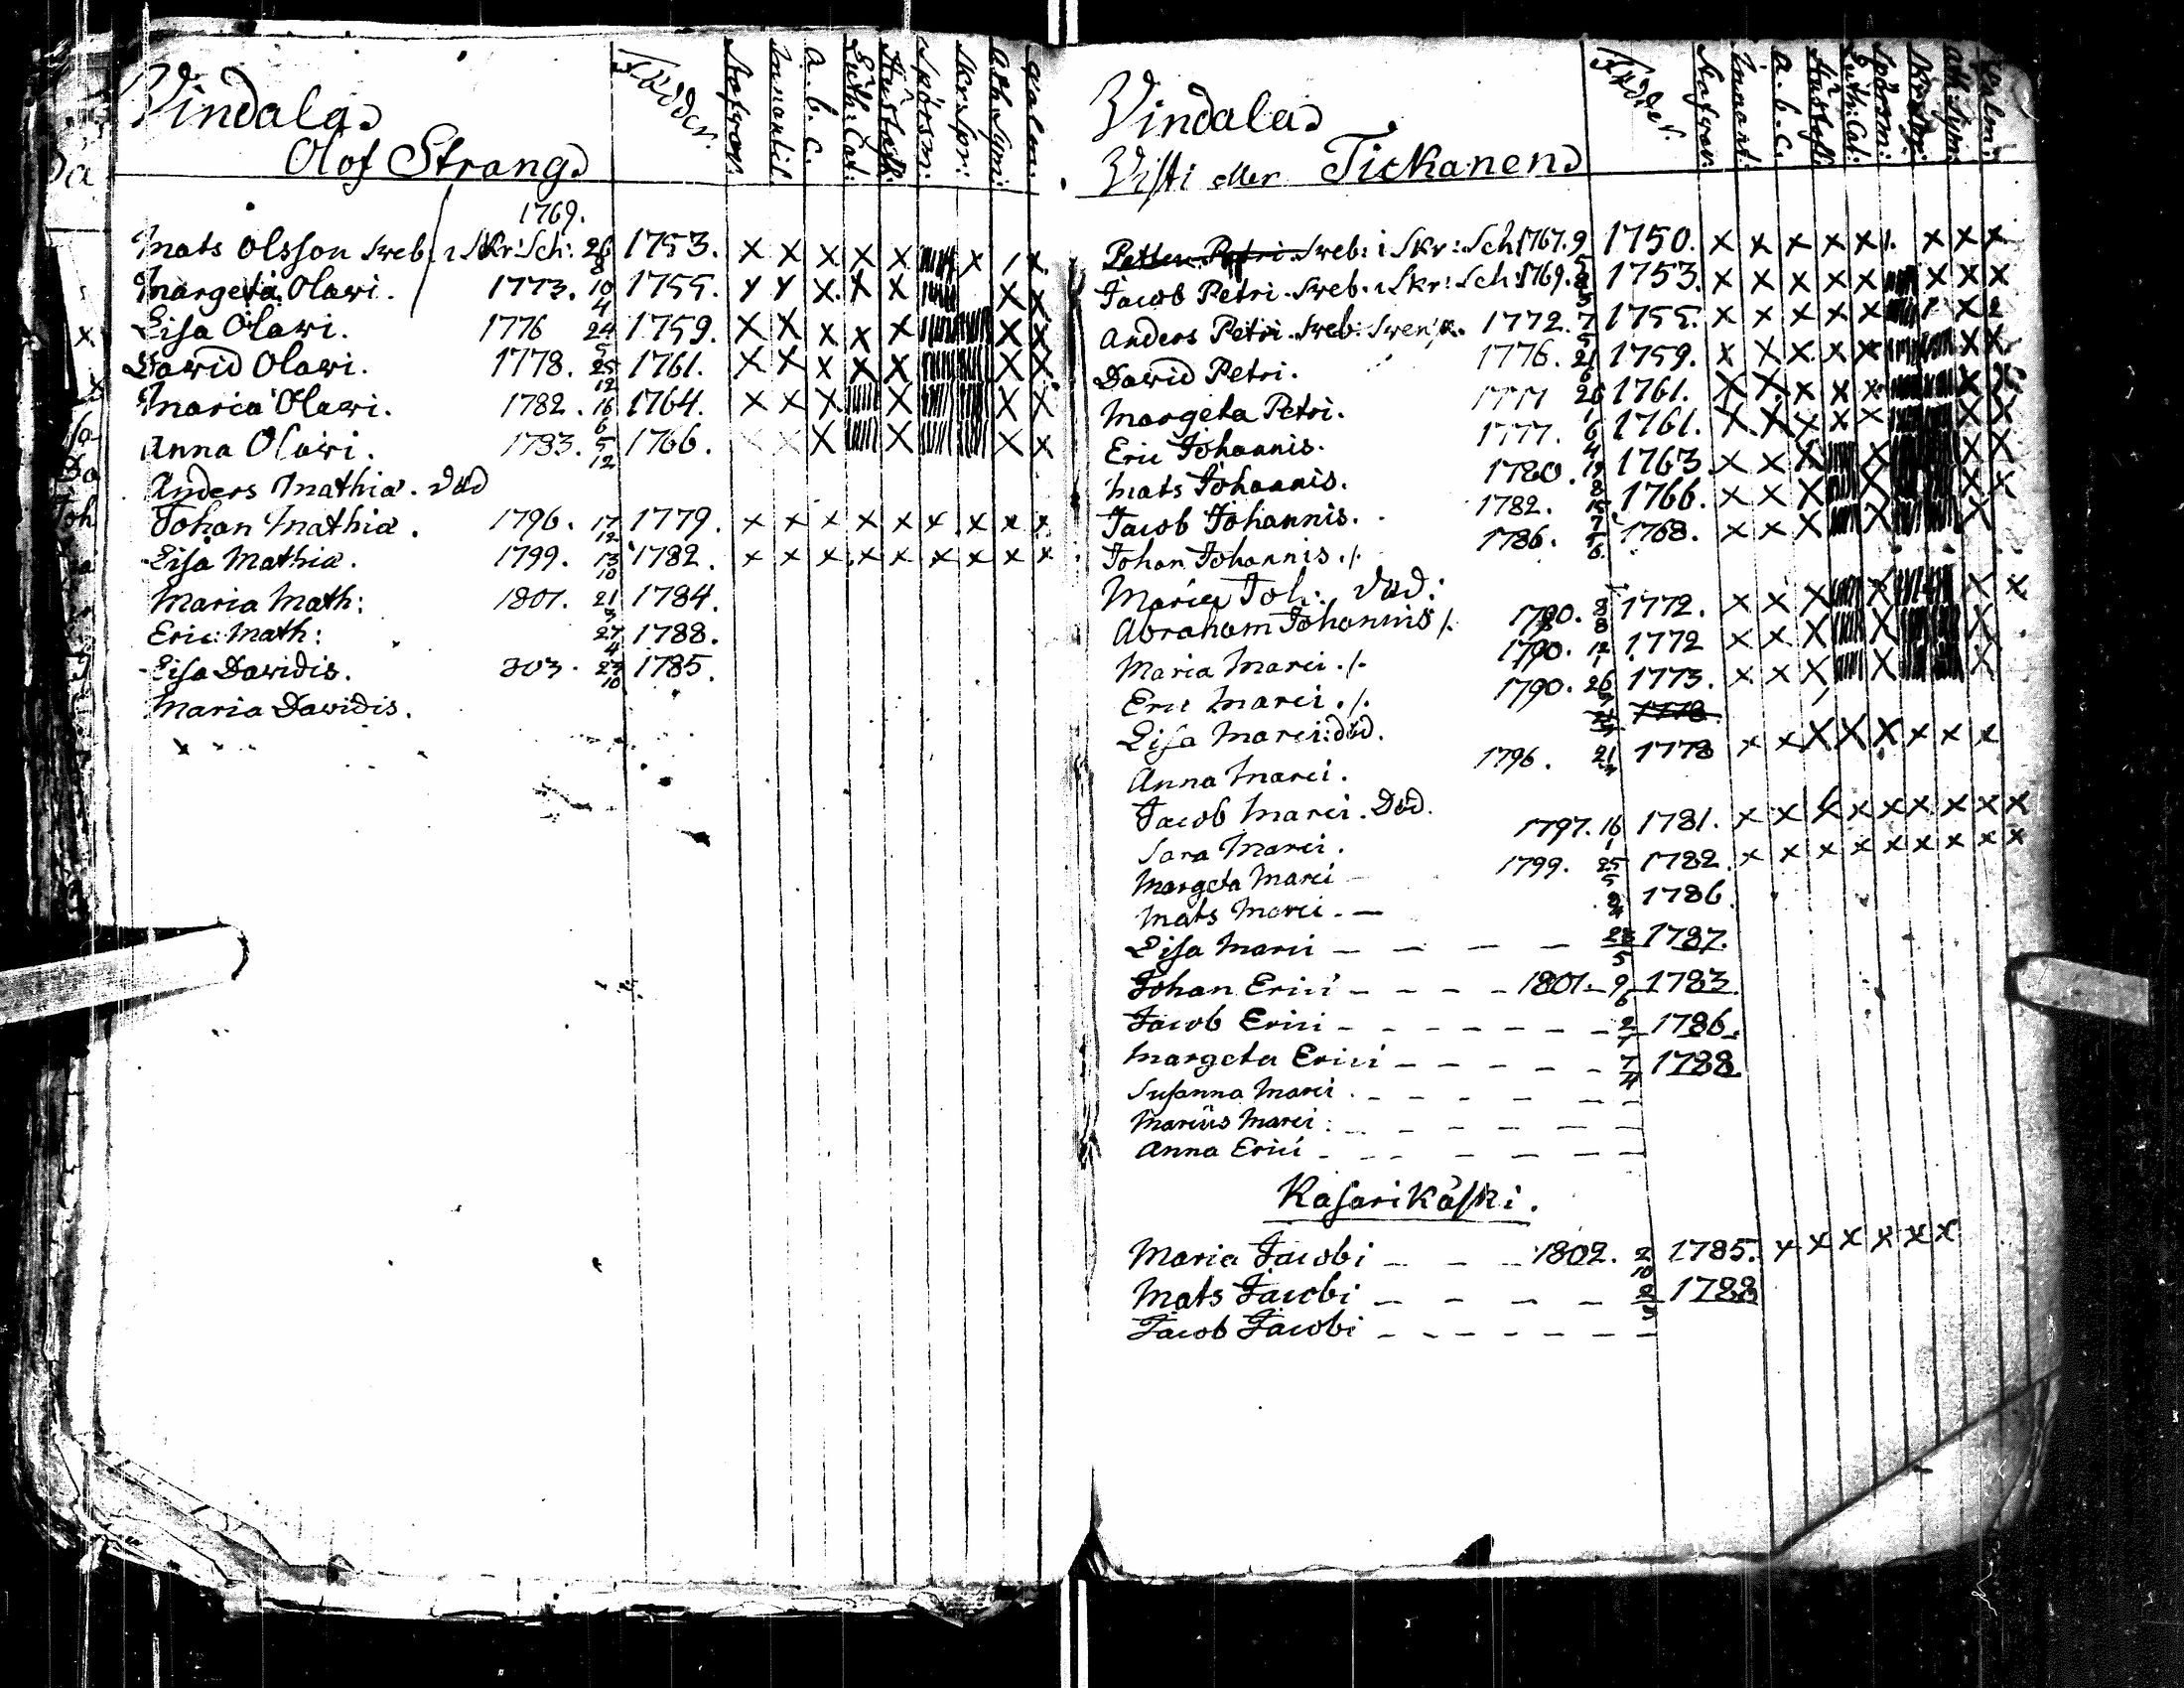 Vindala
Olof Strang
Födder.
Stafvar:
Innantil.
A. b. C.
Luth: Cat:
Hustafl:
Spörsm:
Skr: Spr:
Ath: Sym:
Psalm:
1769.
Mats Olsson Sveb: i Skr: Sch: 26/8 1753. x x x x x x 1 x
Margeta Olavi. 1773. 10/4 1755. x x x x x x x
Lisa Olavi. 1776 24/5 1759. x x x x x x x
David Olavi. 1778. 25/12 1761. x x x x x x x
Maria Olavi. 1782. 16/6 1764. x x x x x x
Anna Olavi. 1783. 5/12 1766. x x x x x x
Anders Mathiæ. död
Johan Mathiæ. 1796. 17/12 1779. x x x x x x x x x
Lisa Mathiæ. 1799. 13/10 1782. x x x x x x x x x
Maria Math: 1801. 21/3 1784.
Eric: Math: 27/4 1788.
Lisa Davidis. 803. 23/10 1785.
Maria Davidis.
Vindala
Visti eller Tickanen
Födder.
Stafvar:
Innant:
A. b. C.
Hustafl:
Luth: Cat:
Spörsm:
Skr: Spr:
Ath: Sym:
Psalm:
Petter Petri Sveb: i Skr: Sch: 1767. 9/5 1750. x x x x x 1. x x x
Jacob Petri. Sveb. i Skr: Sch: 1769. 1753. x x x x x x x x
Anders Petri. Sveb: 1772. 7/5 1755. x x x x x x
David Petri. 1776. 21/6 1759. x x x x x x x
Margeta Petri. 1777 26/1 1761. x x x x x x x
Eric Johannis. 1777. 6/4 1761. x x x x x x x
Mats Johannis. 1780. 19/8 1763. x x x x x x
Jacob Johannis. 1782. 15/7 1766. x x x x x x
Johan Johannis. /. 1786. 1768. x x x x x
Maria Joh: död:
Abraham Johannis /. 1790. 8/8 1772. x x x x x x
Maria Marci. /. 1790. 12/1 1772 x x x x x
Eric Marci. /. 1790. 26 1773. x x x x x
Lisa Marci: död. 1778
Anna Marci. 1796. 21 1778 x x x x x x x x
Jacob Marci. Död.
Sara Marci. 1797. 16/1 1781. x x x x x x x x x
Margeta Marci 1799. 25/5 1782. x x x x x x x x x
Mats Marci. — 1786.
Lisa Marci — — — — 23/5 1787.
Johan Erici — — — — 1801. 9/6 1783.
Jacob Erici — — — — — — — 1786.
Margeta Erici — — — — — — 7/4 1788
Susanna Marci . — — — — — —
Marcus Marci : — — — — — —
Anna Erici — — — — — — —
Kasarikåski.
Maria Jacobi — — — 1802. 2/10 1785. x x x x x x
Mats Jacobi — — — — 1788
Jacob Jacobi — — — — — — —